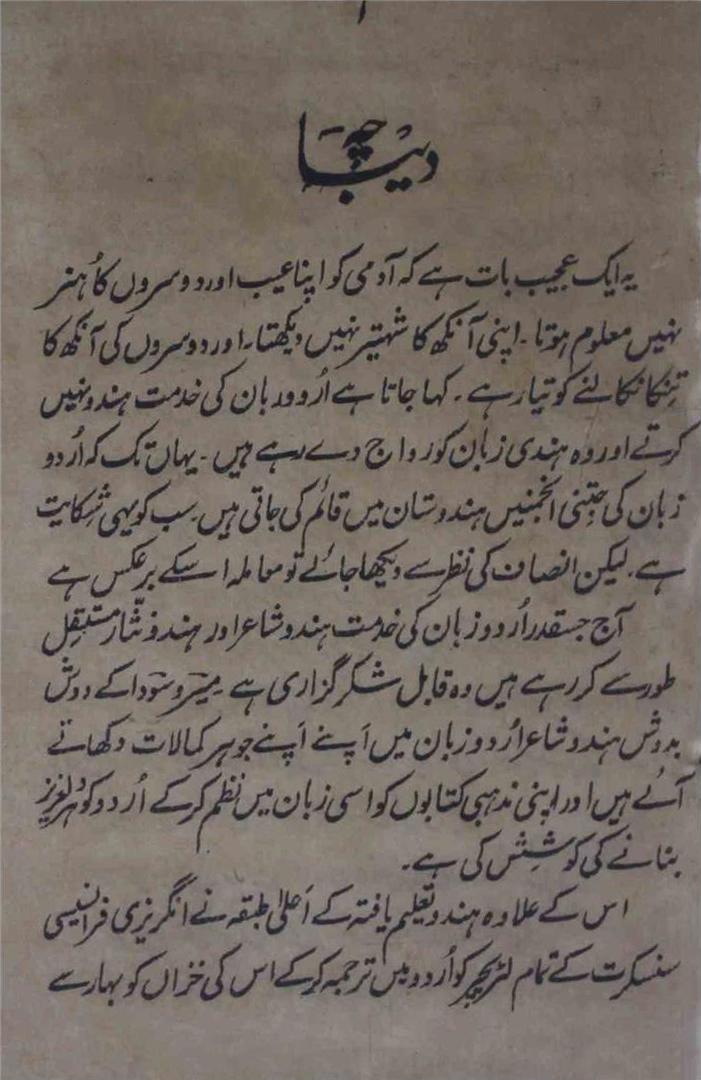 ۱
دیباچہ
یہ ایک عجیب بات ہے کہ آدمی کو اپنا عیب اور دوسروں کا ہُنر
نہیں معلوم ہوتا۔ اپنی آنکھ کا شہتیر نہیں دیکھتا۔ اور دوسروں کی آنکھ کا
تِنکا نکالنے کو تیار ہے۔ کہا جاتا ہے اُردو زبان کی خدمت ہندو نہیں
کرتے اور وہ ہندی زبان کو رواج دے رہے ہیں۔ یہاں تک کہ اُردو
زبان کی جتنی انجمنیں ہندوستان میں قائم کی جاتی ہیں۔ سب کو یہی شکایت
ہے۔ لیکن انصاف کی نظر سے دیکھا جائے تو معاملہ اسکے برعکس ہے
آج جسقدر اُردو زبان کی خدمت ہندو شاعر اور ہندو نثّار مستقِل
طور سے کر رہے ہیں وہ قابل شکر گزاری ہے۔ میرؔ و سوداؔ کے دوش
بدوش ہندو شاعر اُردو زبان میں اَپنے اَپنے جوہر کمالات دکھاتے
آئے ہیں اور اپنی مذہبی کتابوں کو اسی زبان میں نظم کرکے اُردو کو ہر دلعزیز
بنانے کی کوشِش کی ہے۔
اس کے علاوہ ہندو تعلیم یافتہ کے اَعلیٰ طبقہ نے انگریزی فرانسیسی
سنسکرت کے تمام لٹریچر کو اُردو میں ترجمہ کرکے اس کی خزاں کو بہار سے